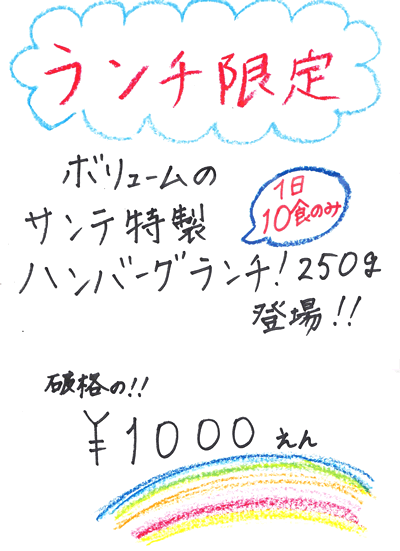 ランチ限定
ボリュームの
サンテ特製
1日
10食のみ
ハンバーグランチ!250g
登場!!
破格の!!
¥1000 えん